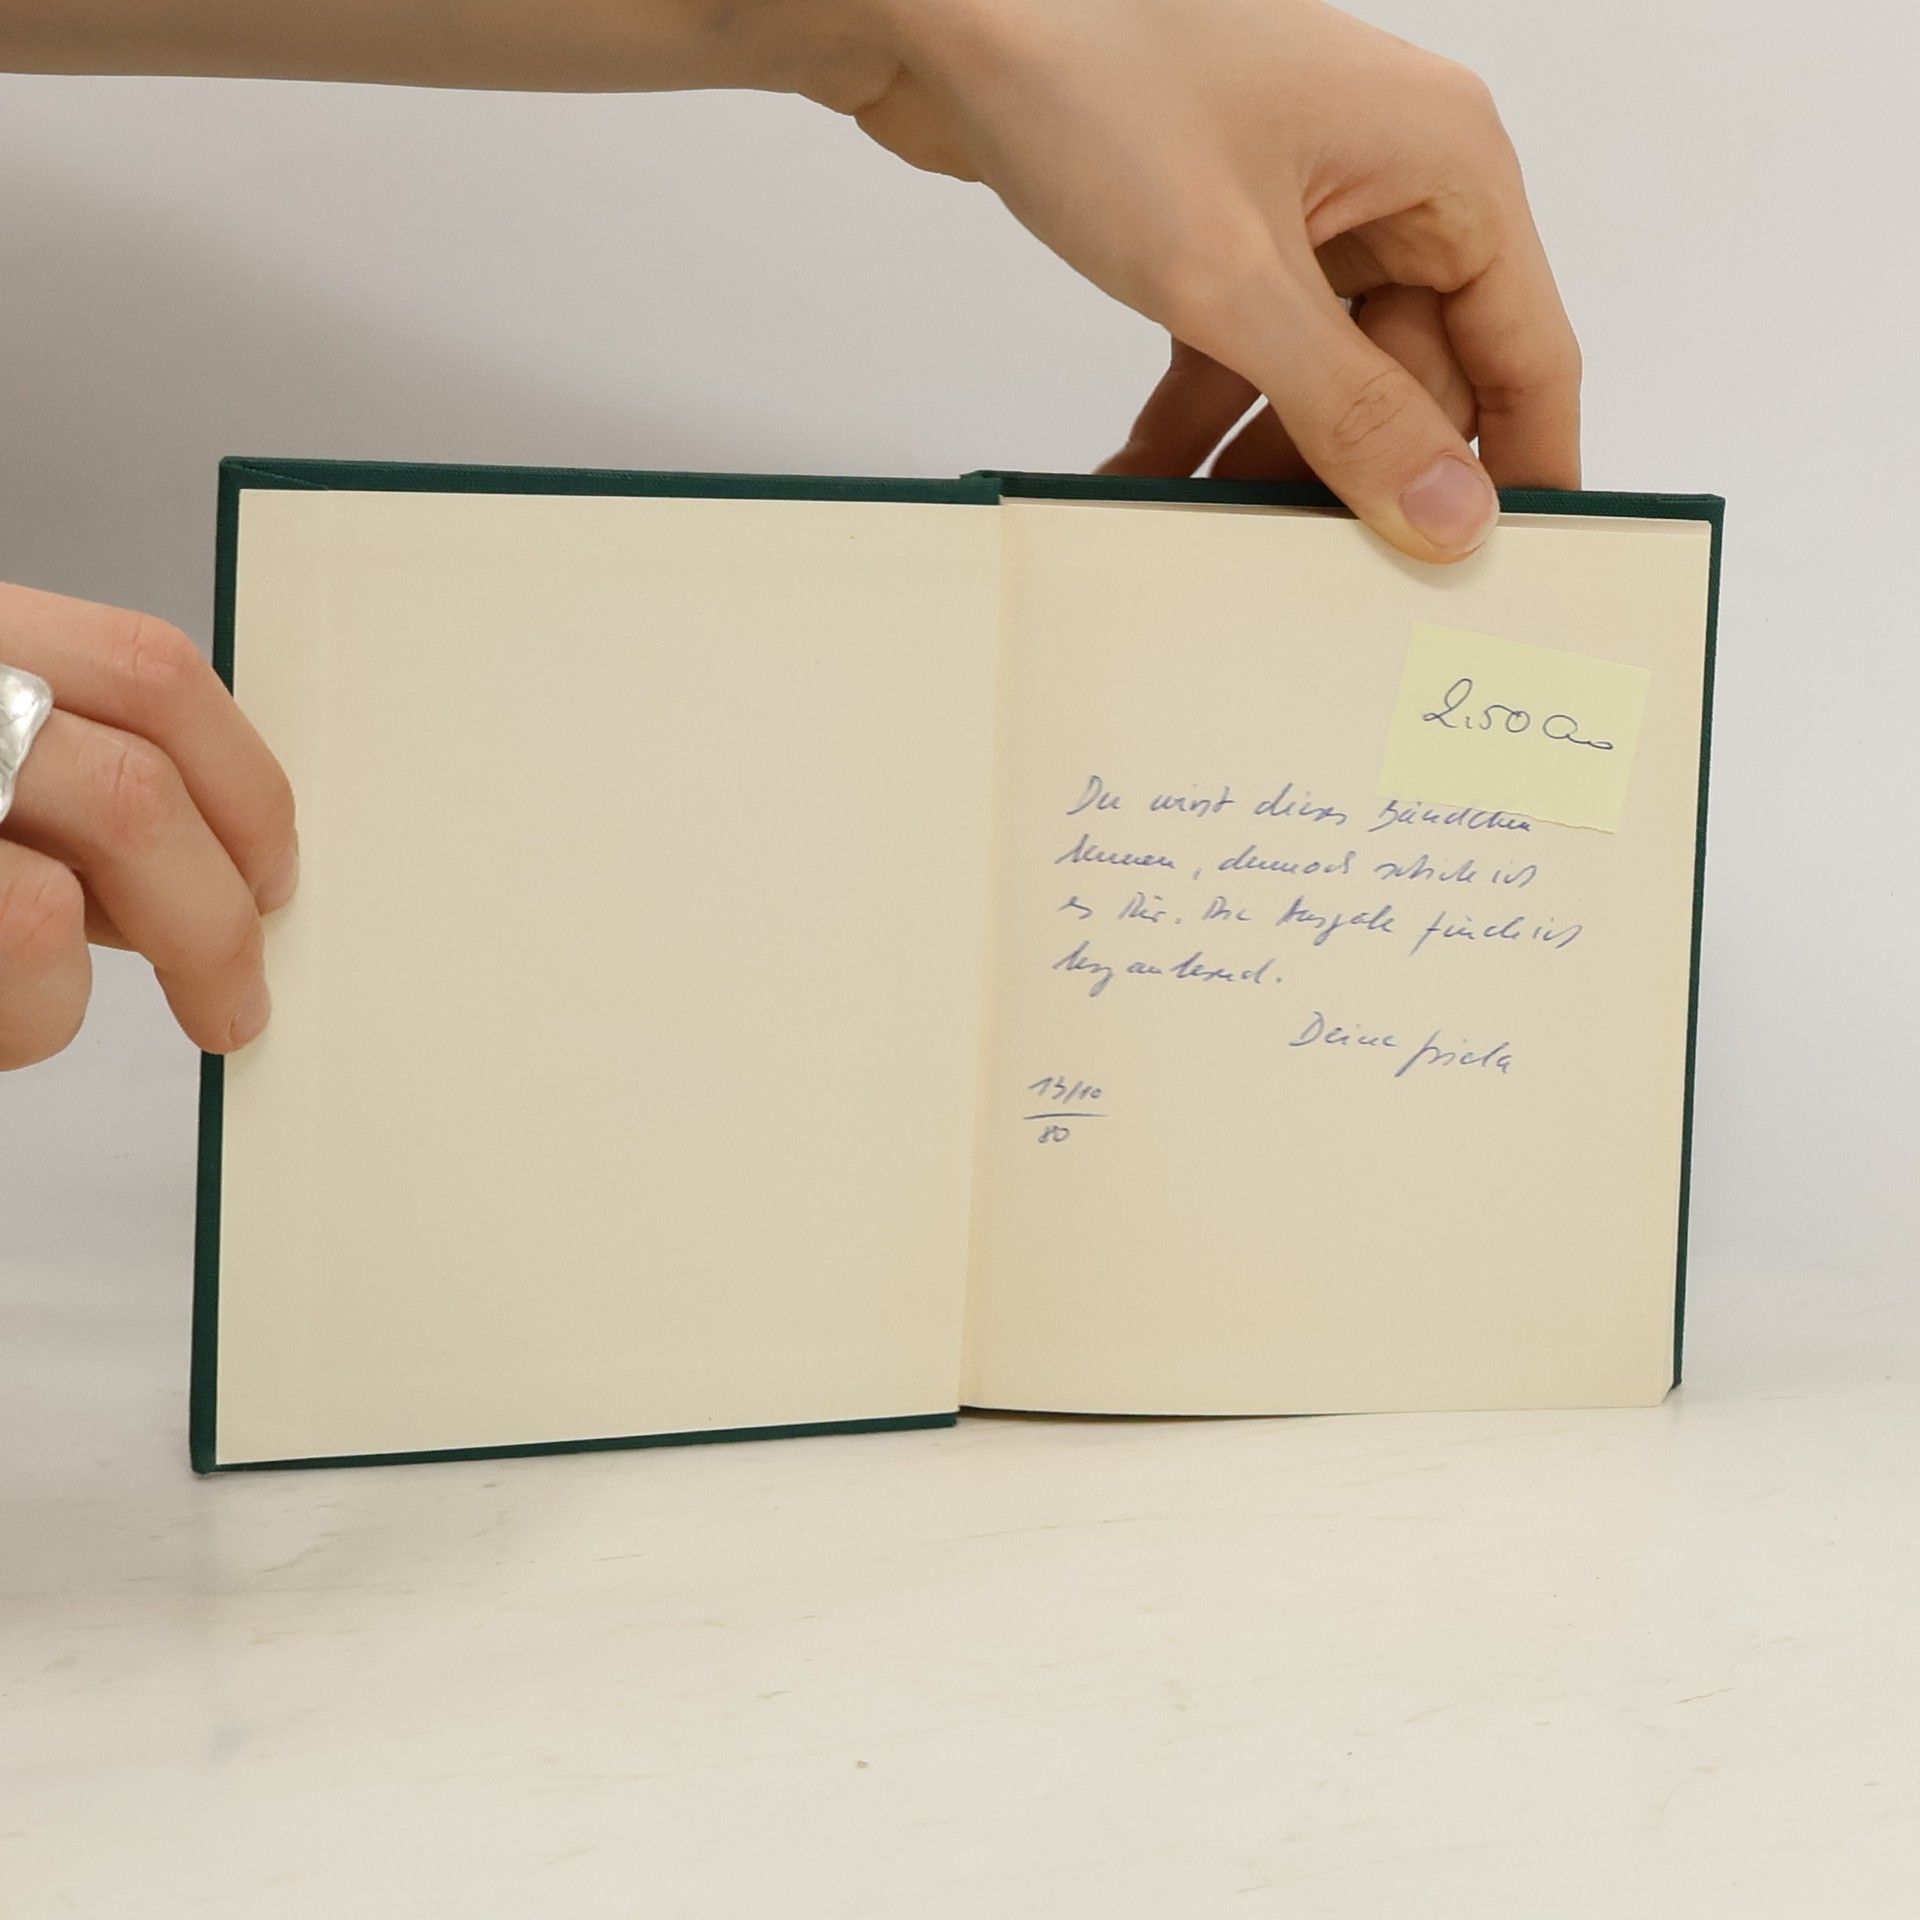 2.50
Du wirst dieses Bändchen
kennen, dennoch schicke ich
es Dir. Die Ausgabe finde ich
bezaubernd.
Deine Gisela
13/10
80